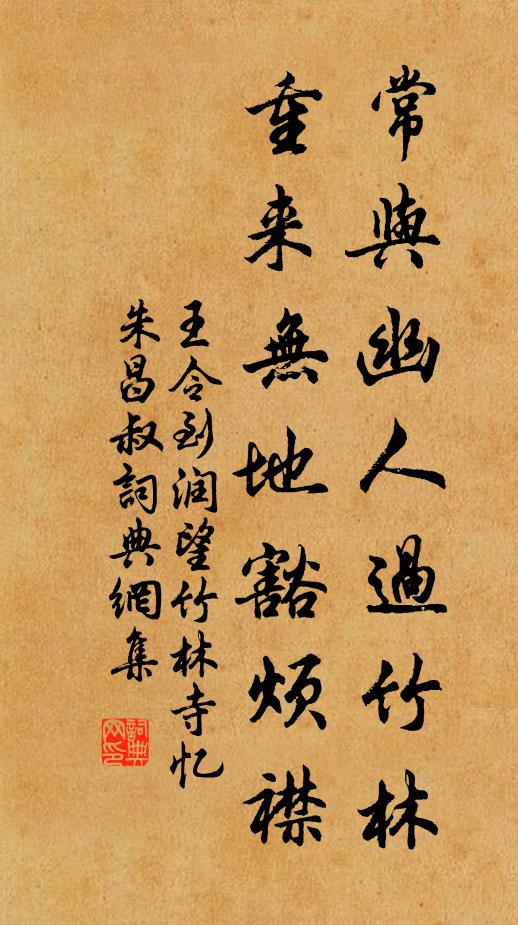 常與幽人過竹林
重来無地豁煩襟
王令到润望竹林寺忆
朱昌叔詞典網集
詞典
网印